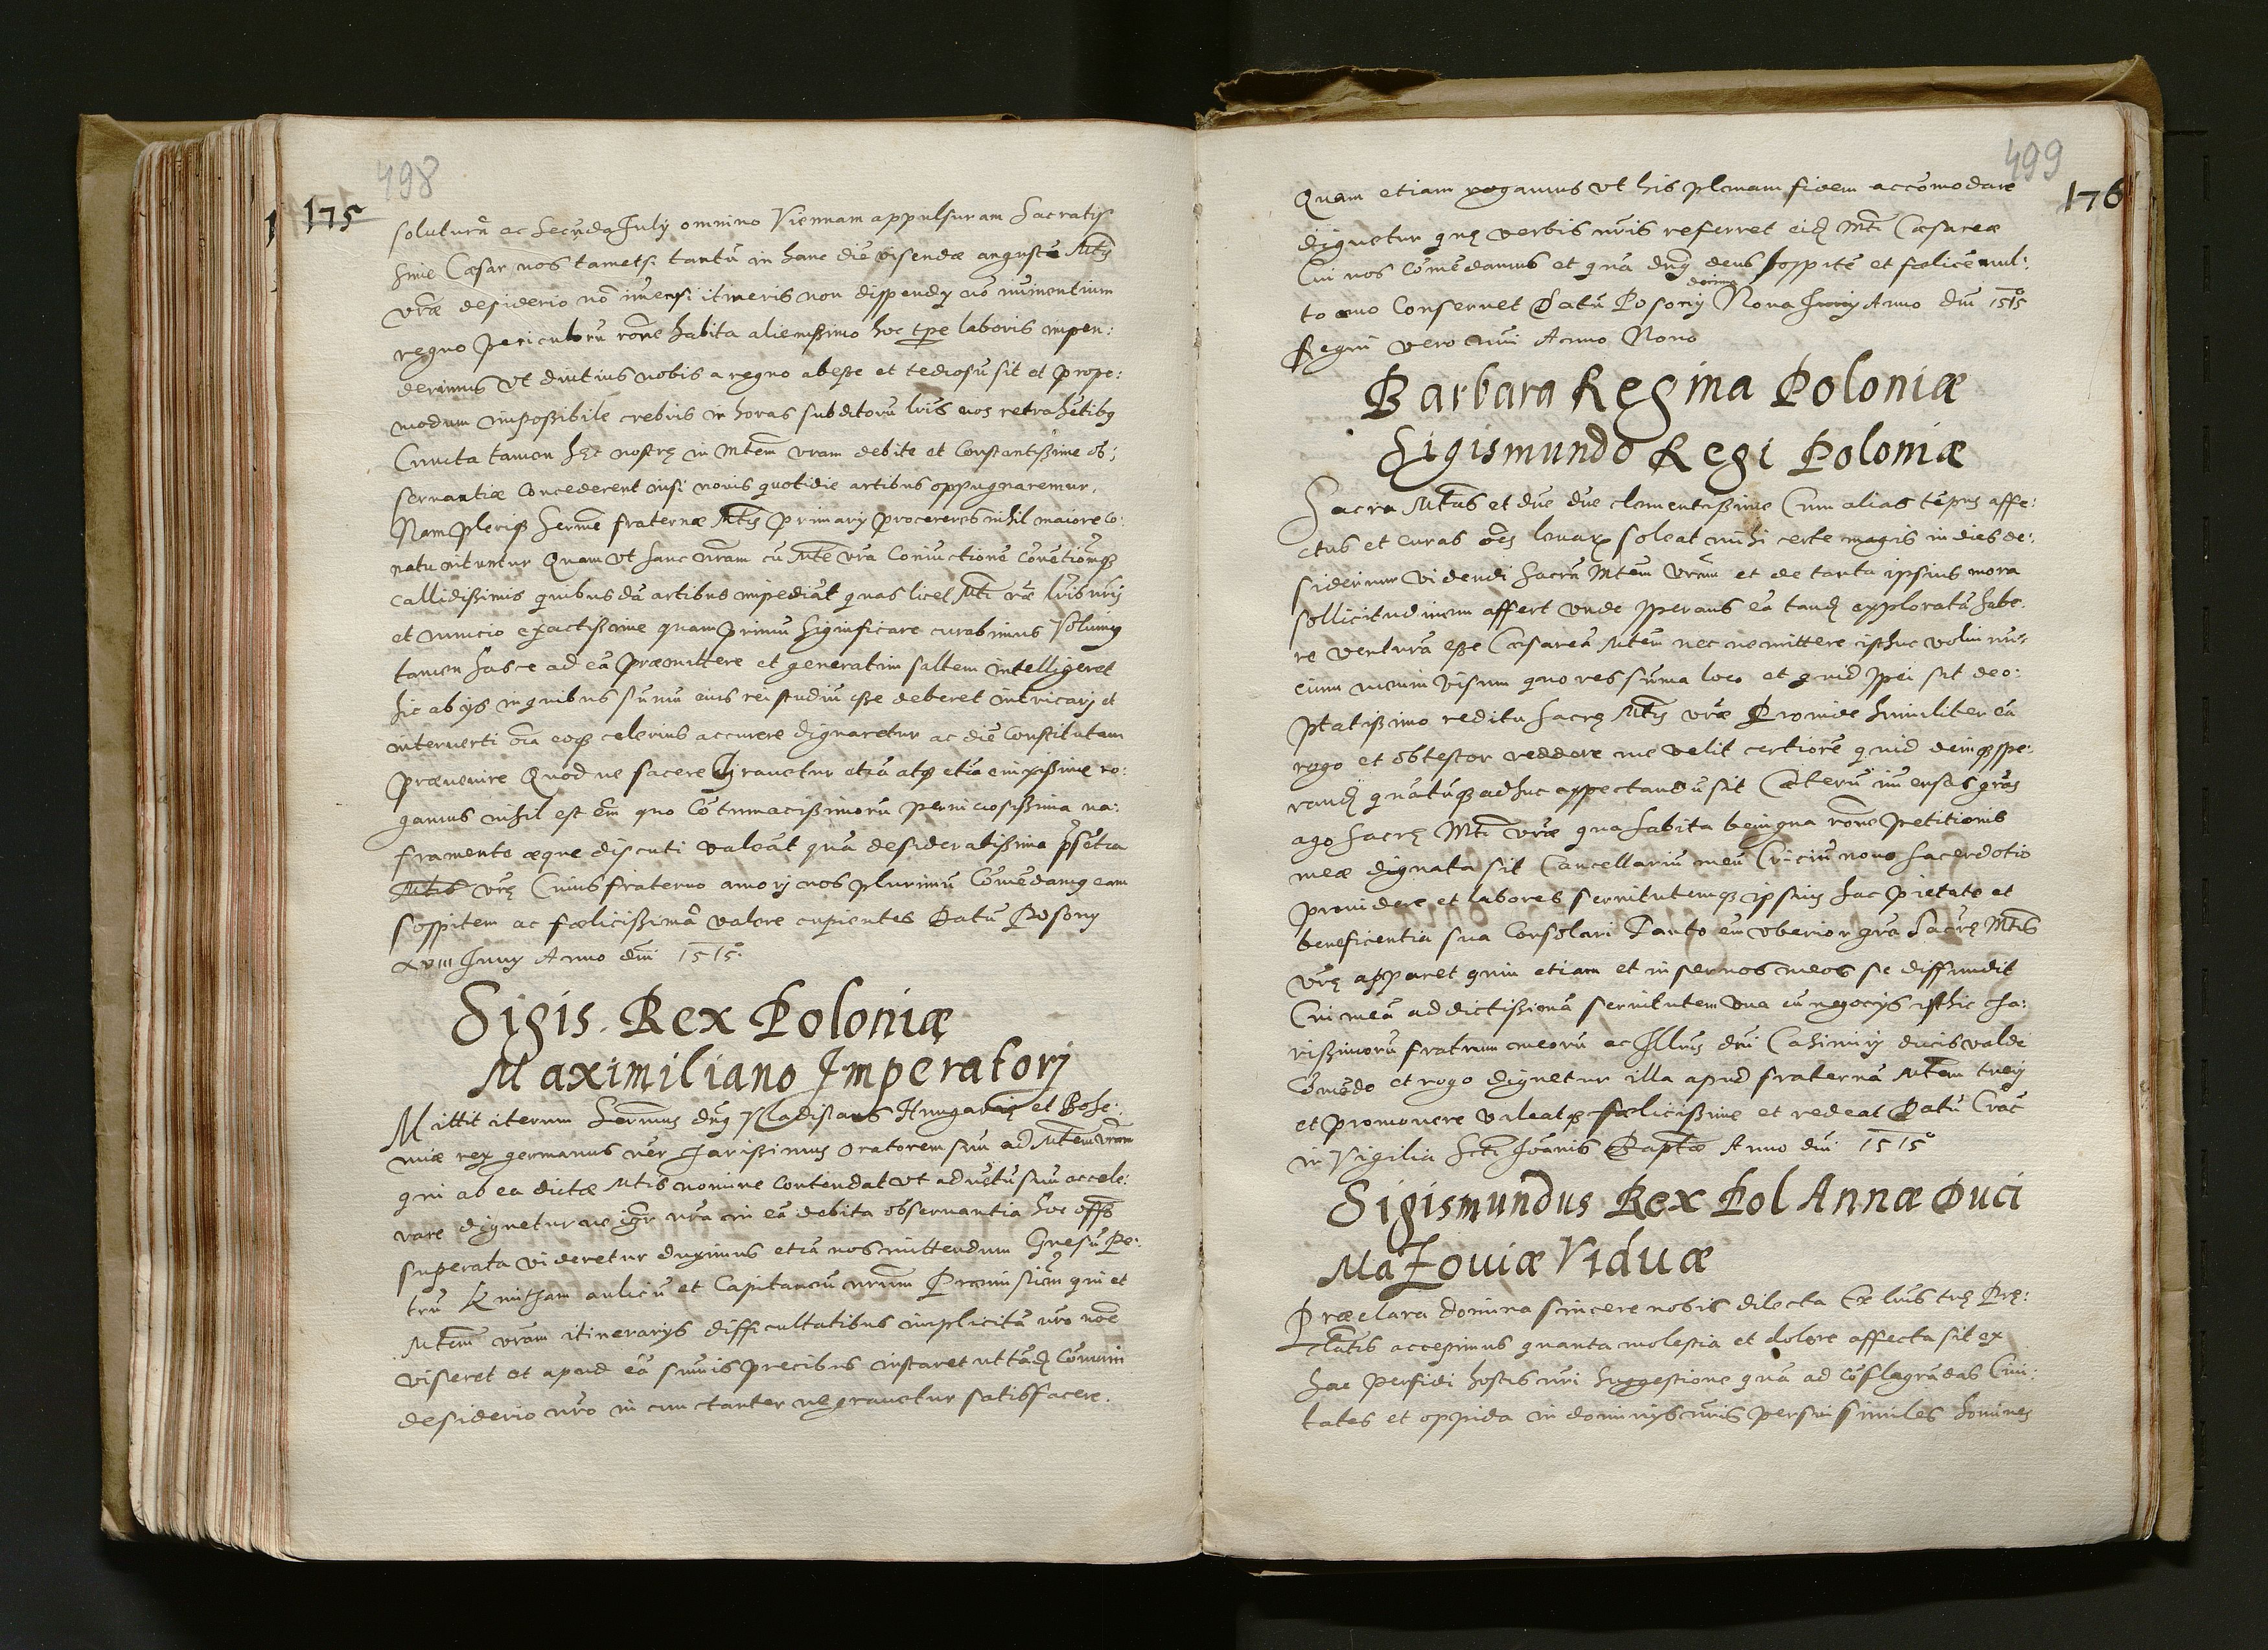 498
175
soluturã ac Secũda July omnino Viennam appulsuram Sacratis
sime Cæsar nos tametsi tantũ in hanc diẽ visendæ augustæ Mtis
vr̃æ desiderio nõ imẽsi itineris non dispendy nõ iminentium
regno periculorũ rõne habita alienissimo hoc tpe laboris impen:
derimus vt diutius nobis a regno abesse et tediosũ sit et prope:
modum impossibile crebris in horas subditorũ lris nos retrahẽtibq
Cuncta tamen hęc nostrę in Mtem vram debite et Constantissime ob:
seruantiæ Concederent nisi nouis quotidie artibus oppugnaremur.
Nam pleriqȝ Serme fraternæ Mtis primary proceres nihil maiore co:
natu nituntur Quam vt hanc nr̃am cũ Mte vra Coniuctionẽ Cõuẽtionẽqȝ
callidissimis quibusdã artibus impediãt quas licet Mti vrẽ lris nris
et nuncio exactissime quam primũ significare curabimus Volumq
tamen hasce ad eã præmittere et generatim saltem intelligeret
hic ab ijs in quibus sũmũ eius rei studiũ esse deberet intricarj et
interuerti oĩa eoqȝ celerius accurere dignaretur ac diẽ Constitutam
præuenire Quod ne facere grauetur etiã atqȝ etiã enixissime ro:
gamus nihil est em̃ quo Cõtumacissimorũ perniciosissima na:
framenta æque discuti valeãt quã desideratissima p̃sẽtia
Mtis vrę Cuius fraterno amorj nos plurimũ Cõmẽdamq eam
sospitem ac fœlicissimã valere cupientes Datũ Posony
xviii Juny Anno dni 1515.
Sigis. Rex Poloniæ
Maximiliano Imperatorj
Mittit iterum Sermus dnq Vladislaus Hungarię et Bohe:
miæ rex germanus nẽr charissimus Oratorem suũ ad Mtem vram
qui ab ea dictæ Mtis nomine Contendat vt aduẽtũ suũ accele:
rare dignetur ne igr nr̃a in eã debita obseruantia hoc offo
superata videretur duximus etiã nos mittendum Gnesũ Pe:
trũ Kmitham aulicũ et Capitaneũ nrum Præmisliem qui et
Mtem vram itinerarijs difficultatibus implicitã nr̃o noĩe
viseret et apud eã sũmis precibus instaret ut tãdẽ Cõmuni
desiderio nr̃o in cunctanter ne grauetur satisfacere.
499
176
Quam etiam rogamus vt his plenam fidem accõmodare
dignetur quę verbis nr̃is referret eidẽ Mti Cæsareæ
Cui nos Cõmẽdamus et quã dnq deus sospitẽ et fœlicẽ mul:
to æuo Conseruet Datũ Posony decima Nona Juny Anno dni 1515
Regni vero nri Anno Nono
Barbara Regina Poloniæ
Sigismundo Regi Poloniæ
Sacra Mtas et dne dne clementissime Cum alias tẽpus affe:
ctus et curas oẽs leuare soleat mihi certe magis in dies de:
siderium videndi Sacrã Mtem Vram et de tanta ipsius mora
sollicitudinem affert vnde sperans eã tandẽ exploratã habe:
re venturã esse Cæsareã Mtem nec ne mittere isthuc volui nu:
cium meum visum quo res sũma loco et quid spei sit deo:
ptatissimo reditu Sacrę Mtis vræ Proinde humiliter eã
rogo et obtestor reddere me velit certiorẽ quid deinqȝ spe:
randũ quãtũqȝ adhuc expectandũ sit Cæterũ imẽnsas gr̃as
ago Sacrę Mti vræ qua habita benigna rõne petitionis
meæ dignata sit Cancellariũ meũ Criciũ nouo Sacerdotio
prouidere et labores seruitutemqȝ ipsius hac pietate et
beneficentia sua Consolari Tanto em̃ vberior gr̃a Sacrę Mtis
vrę apparet quin etiam et in seruos meos se diffundit
Cui meã addictissimã seruitutem vna cũ negocijs isthic cha:
rissimorũ fratrum meorũ ac Illmi dni Casimiry ducis valde
Cõmẽdo et rogo dignetur illa apud fraternã Mtem tuerj
et promouere valeatqȝ fœlicissime et redeat Datũ Crac̃
in Vigilia Scti Joãnis Baptæ Anno dni 1515
Sigismundus Rex Pol Annæ Duci
Mazouiæ Viduæ
Præclara domina sincere nobis dilecta Ex lris trę Prę:
clatis accepimus quanta molestia et dolore affecta sit ex
hac perfidi hostis nri suggestione quã ad cõflagrãdas Ciui:
tates et oppida in dominijs nris persimiles homines